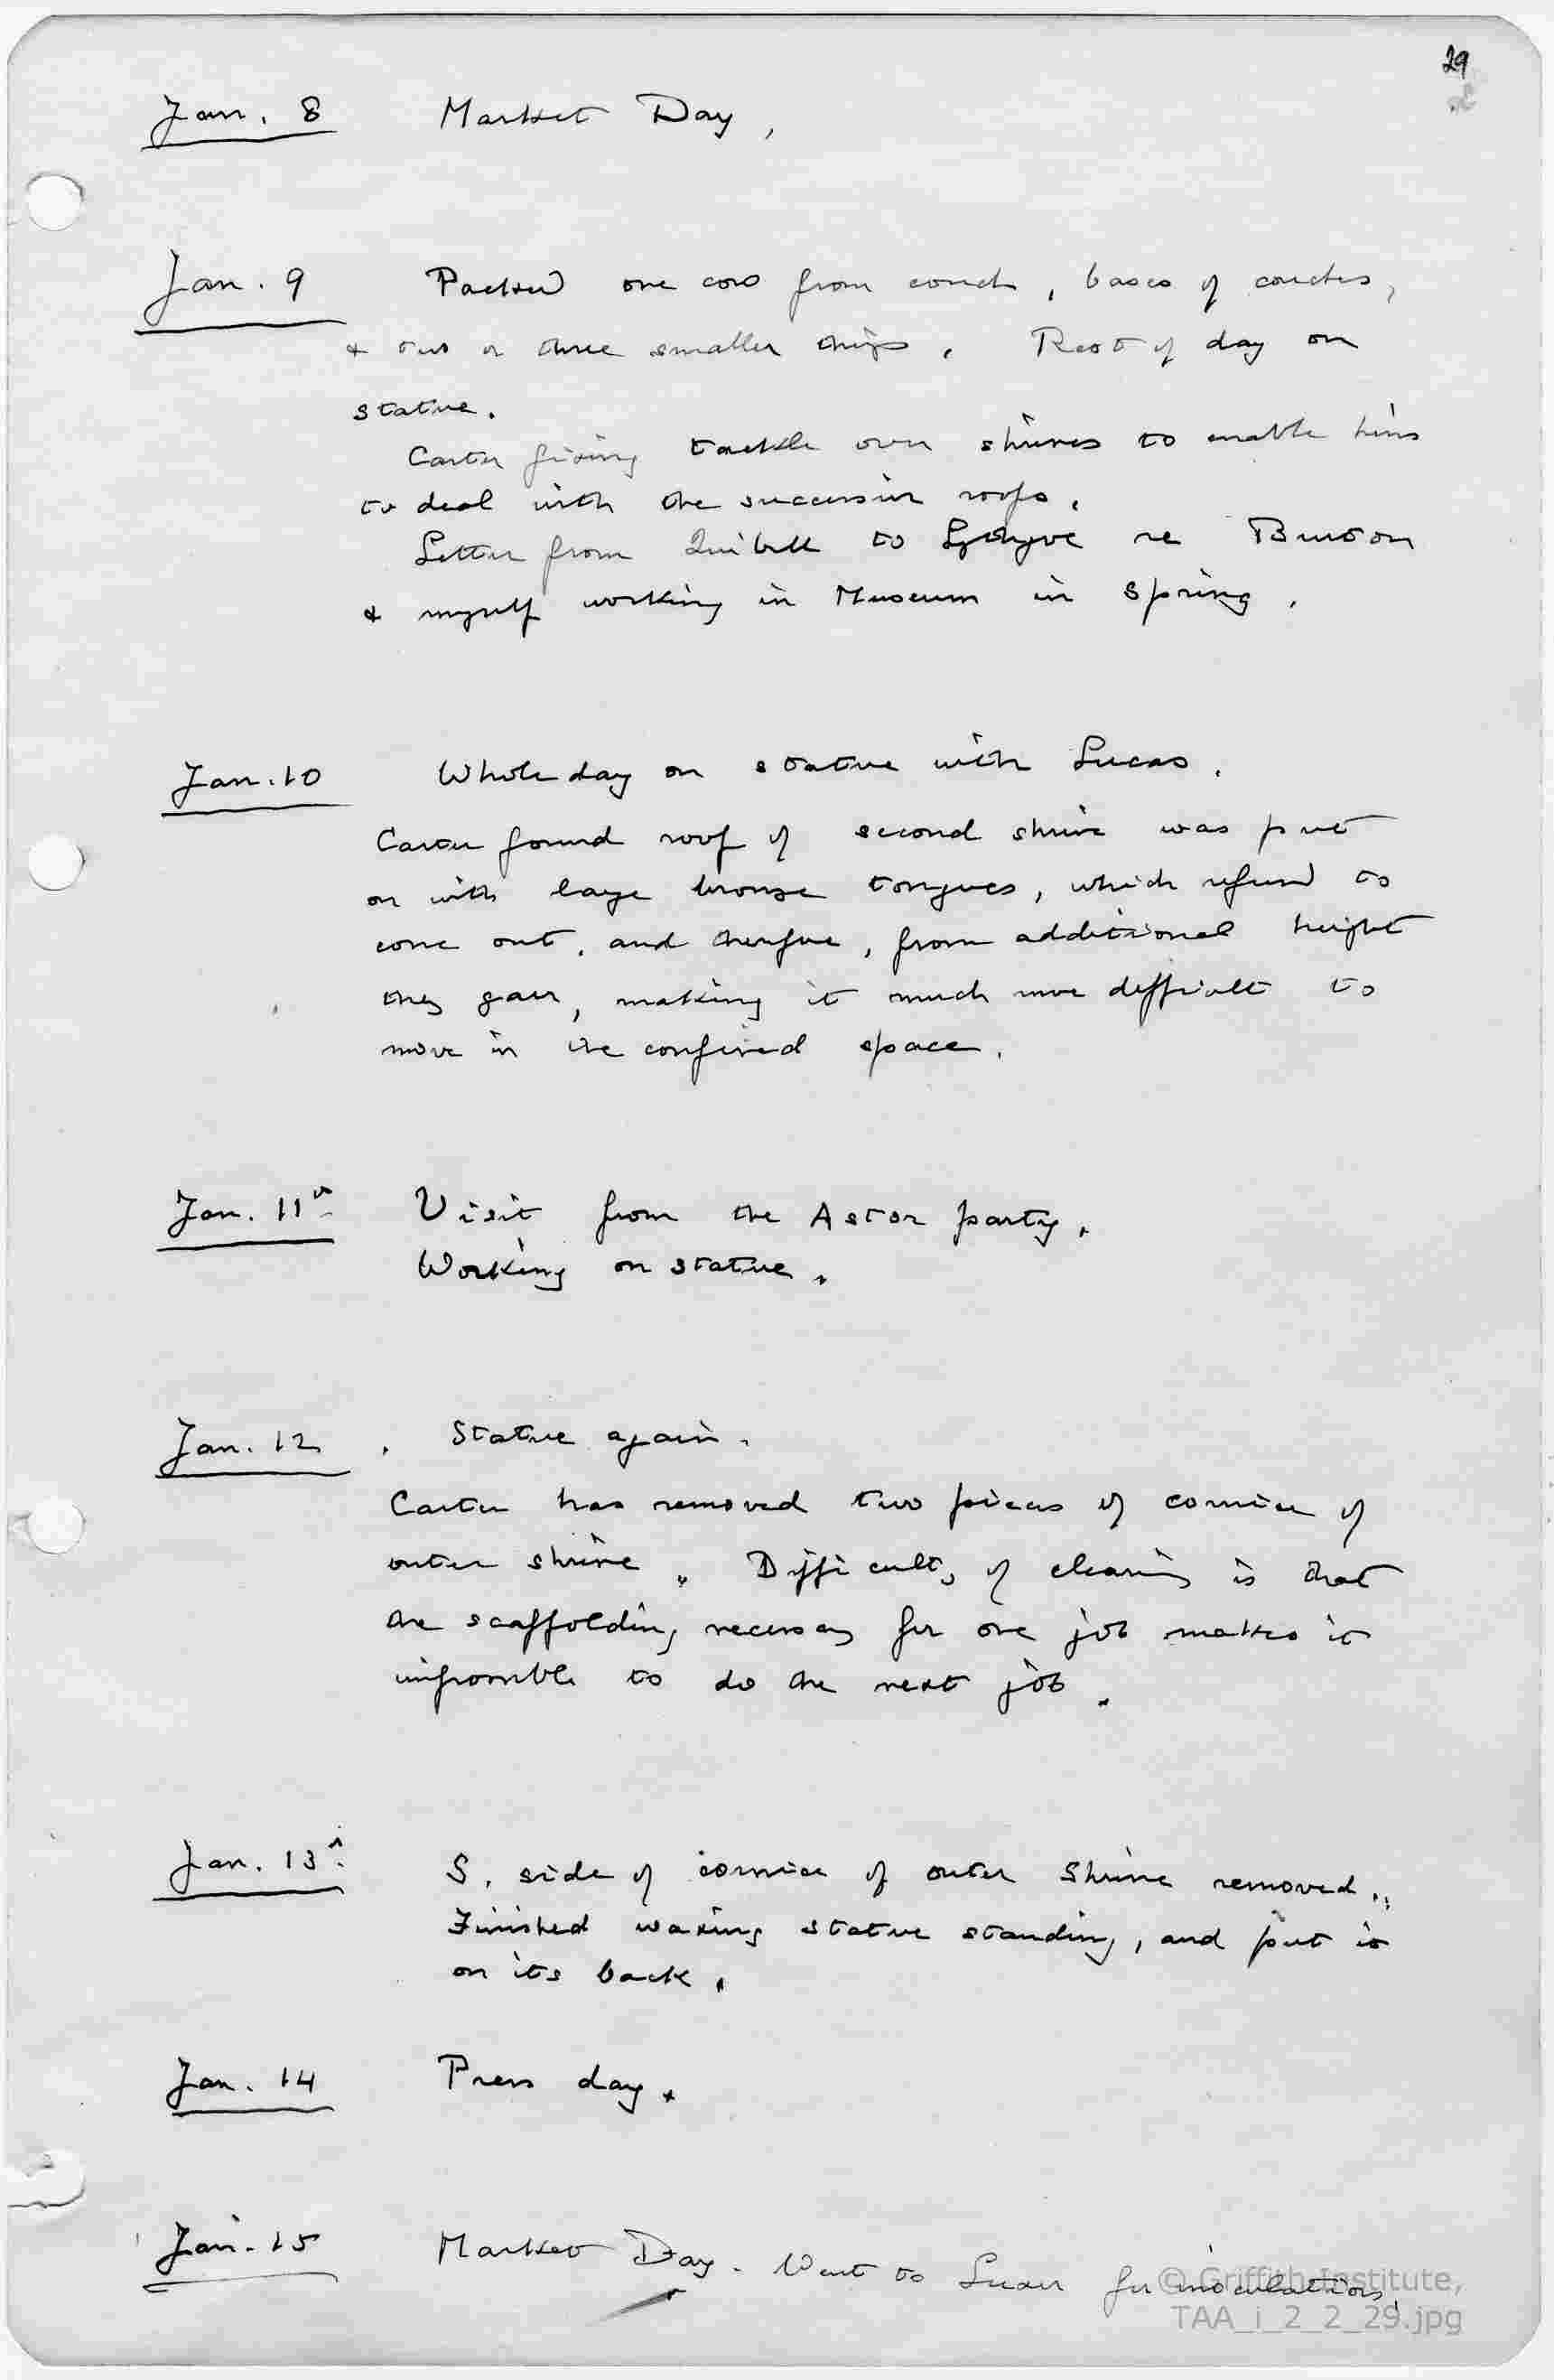 29
Jan. 8 Market Day,
Jan. 9 Packed one cow from couch, bases of couches,
& two or three smaller things. Rest of day on
statue.
Carter fixing tackle over shrines to enable him
to deal with the successive roofs.
Letter from Quibell to Lythgoe re Burton
& myself working in Museum in Spring.
Jan. 10 Whole day on statue with Lucas.
Carter found roof of second shrine was put
on with large bronze tongues, which refused to
come out, and therefore, from additional height
they gave, making it much more difficult to
move in the confined space.
Jan. 11th Visit from the Astor party.
Working on statue.
Jan. 12. Statue again.
Carter has removed two pieces of cornice of
outer shrine. Difficulty of clearing is that
the scaffolding necessary for one job makes it
impossible to do the next job.
Jan. 13th S. side of cornice of outer shrine removed.
Finished waxing statue standing, and put it
on its back.
Jan. 14 Press day.
Jan. 15 Market Day. Went to Luxor for inoculations.
© Griffith Institute,
TAA_i_2_2_29.jpg